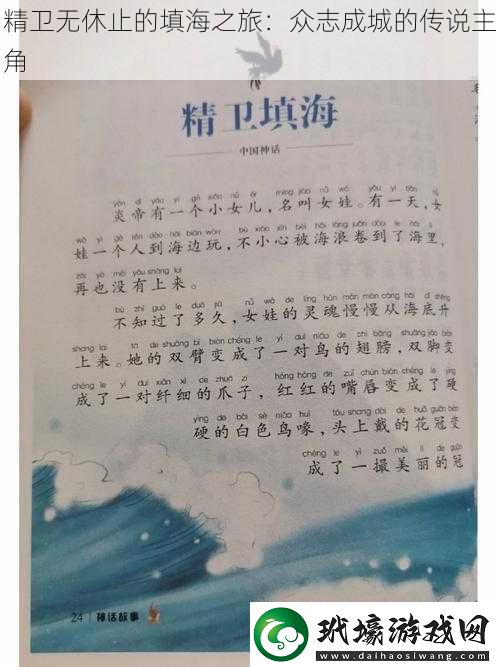 精卫无休止的填海之旅：众志成城的传说主
角
精卫填海
中国神话
yán dì yǒu yí gè xiǎo nǚ ér míng jiào nǚ wá yǒu yì tiān nǚ
炎帝有一个小女儿，名叫女娃。有一天，女
wá yí gè rén dào hǎi biān wán bù xiǎo xīn bèi hǎi làng juǎn dào le hǎi lǐ
娃一个人到海边玩，不小心被海浪卷到了海里，
zài yě méi yǒu shàng lái
再也没有上来。
bù zhī guò le duō jiǔ nǚ wá de líng hún màn màn cóng hǎi dǐ shēng
不知过了多久，女娃的灵魂慢慢从海底升
shàng lái tā de shuāng bì biàn chéng le yí duì niǎo de chì bǎng shuāng jiǎo biàn
上来。她的双臂变成了一对鸟的翅膀，双脚变
chéng le yí duì xiān xì de zhuǎ zi hóng hóng de zuǐ chún biàn chéng le yìng
成了一对纤细的爪子，红红的嘴唇变成了硬
yìng de bái sè niǎo huì tóu shang dài de huā guān biàn
硬的白色鸟喙，头上戴的花冠变
chéng le yì zuǒ měi lì de guān
成了一撮美丽的冠
24 神话故事
玳壕游戏网
www.daihaosiwang.com